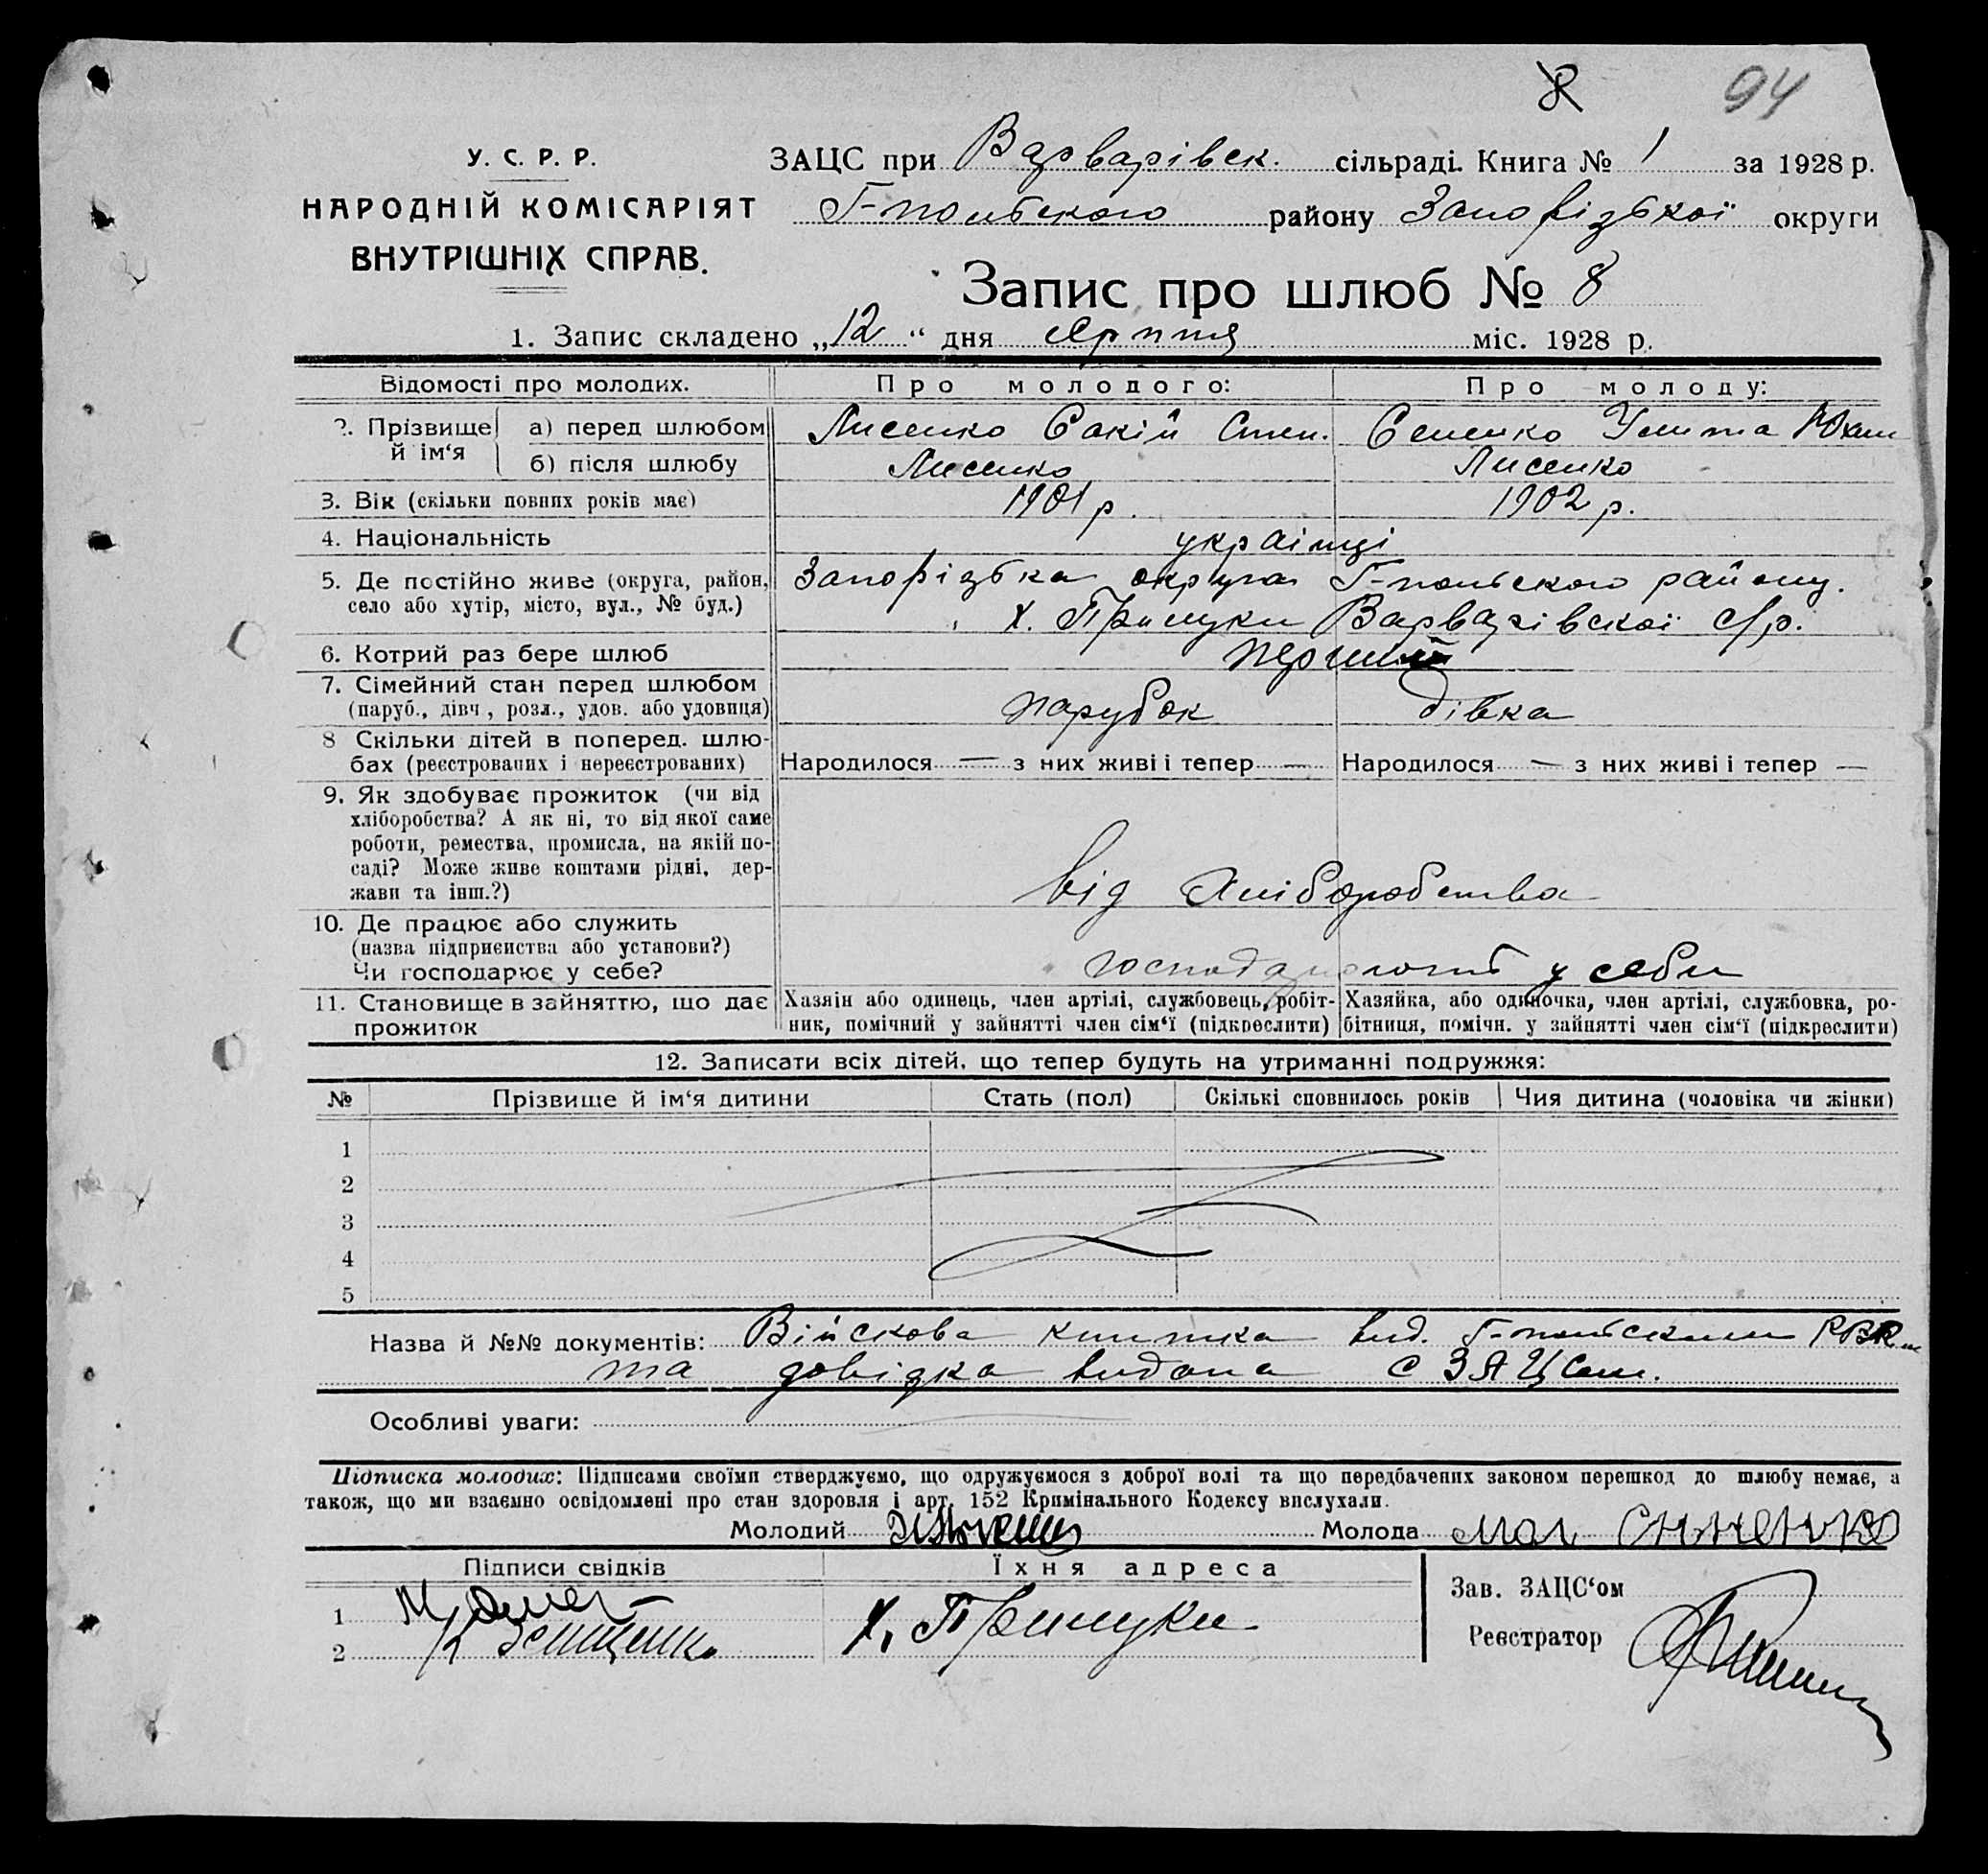 8 94
У. С. Р. Р.
НАРОДНІЙ КОМІСАРІЯТ
ВНУТРІШНІХ СПРАВ.
ЗАЦС при Варварівск. сільраді. Книга № 1 за 1928 р.
Г-польского району Запорізької округи
Запис про шлюб № 8
1. Запис складено „12" дня серпня міс. 1928 р.
Відомості про молодих. Про молодого: Про молоду:
2. Прізвище й ім'я а) перед шлюбом Лисенко Степ. Семенко Улита
б) після шлюбу Лисенко Лисенко
3. Вік (скільки повних років має) 1901 р. 1902 р.
4. Національність українці
5. Де постійно живе (округа, район, Запорізька округа Г-польского району.
село або хутір, місто, вул., № буд.) х. Прилуки Варварівської с/р.
6. Котрий раз бере шлюб перший
7. Сімейний стан перед шлюбом
(паруб., дівч., розл., удов. або удовиця) парубок дівка
8 Скільки дітей в поперед. шлю-
бах (реєстрованих і нереєстрованих) Народилося — з них живі і тепер — Народилося — з них живі і тепер —
9. Як здобуває прожиток (чи від
хліборобства? А як ні, то від якої саме
роботи, ремества, промисла, на якій по-
саді? Може живе коштами рідні, дер-
жави та інш.?) від хліборобства
10. Де працює або служить
(назва підприємства або установи?)
Чи господарює у себе? господарюють у себи
11. Становище в зайняттю, що дає Хазяін або одинець, член артілі, службовець, робіт- Хазяйка, або одиночка, член артілі, службовка, ро-
прожиток ник, помічний у зайнятті член сім'ї (підкреслити) бітниця, помічн. у зайнятті член сім'ї (підкреслити)
12. Записати всіх дітей, що тепер будуть на утриманні подружжя:
№ Прізвище й ім'я дитини Стать (пол) Скількі сповнилось років Чия дитина (чоловіка чи жінки)
1
2
3
4
5
Назва й №№ документів: Військова книжка вид. Г-польским РВК
та довідка видана с ЗАЦСом.
Особливі уваги:
Підписка молодих: Підписами своїми стверджуємо, що одружуємося з доброї волі та що передбачених законом перешкод до шлюбу немає, а
також, що ми взаємно освідомлені про стан здоровля і арт. 152 Кримінального Кодексу вислухали.
Молодий Молода
Підписи свідків Їхня адреса
Зав. ЗАЦС'ом
1 х. Прилуки
Реєстратор
2